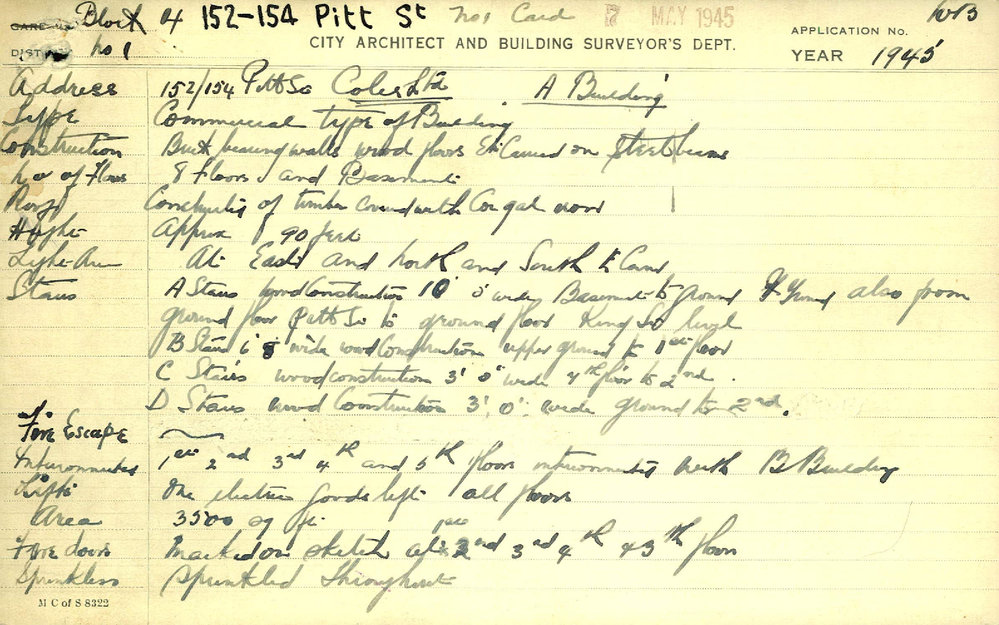 Block 4 152-154 Pitt St No 1 Card 7 MAY 1945
CITY ARCHITECT AND BUILDING SURVEYOR'S DEPT.
APPLICATION No.
YEAR 1945
DIST No 1
Address 152/154 Pitt St Coles Ltd A Building
Type Commercial type of Building
Construction Brick bearing walls wood floors Etc Carried on steel beams
No of Floors 8 Floors and Basement
Roof Construction of timber covered with Corgat iron
Height Approx 90 feet
Light At East and North and South
Stairs A Stairs wood Construction 10' 0" wide Basement to ground also from
ground floor Pitt St to ground floor King St level
B Stairs 6' wide wood Construction upper ground to 1st floor
C Stairs wood construction 3' 0" wide 4th floor to 2nd.
D Stairs wood Construction 3' 0" wide ground to 2nd.
Fire Escape
1st 2nd 3rd 4th and 5th floors with B Building
Lifts One electric goods lift all floors
Area 3500 sq ft
Fire doors Marked on sketch at 1st 2nd 3rd 4th & 5th floors
Sprinklers Sprinkled throughout
M C of S 8322